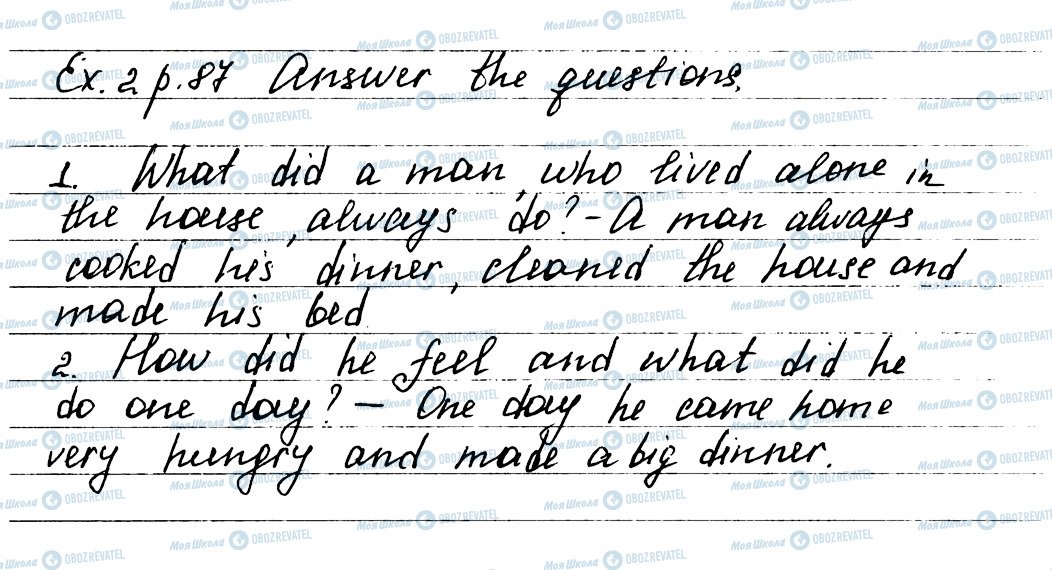 Ex. 2 p. 87 Answer the questions.
1. What did a man, who lived alone in
the house, always do? - A man always
cooked his dinner, cleaned the house and
made his bed
2. How did he feel and what did he
do one day? — One day he came home
very hungry and made a big dinner.
Моя Школа OBOZREVATEL